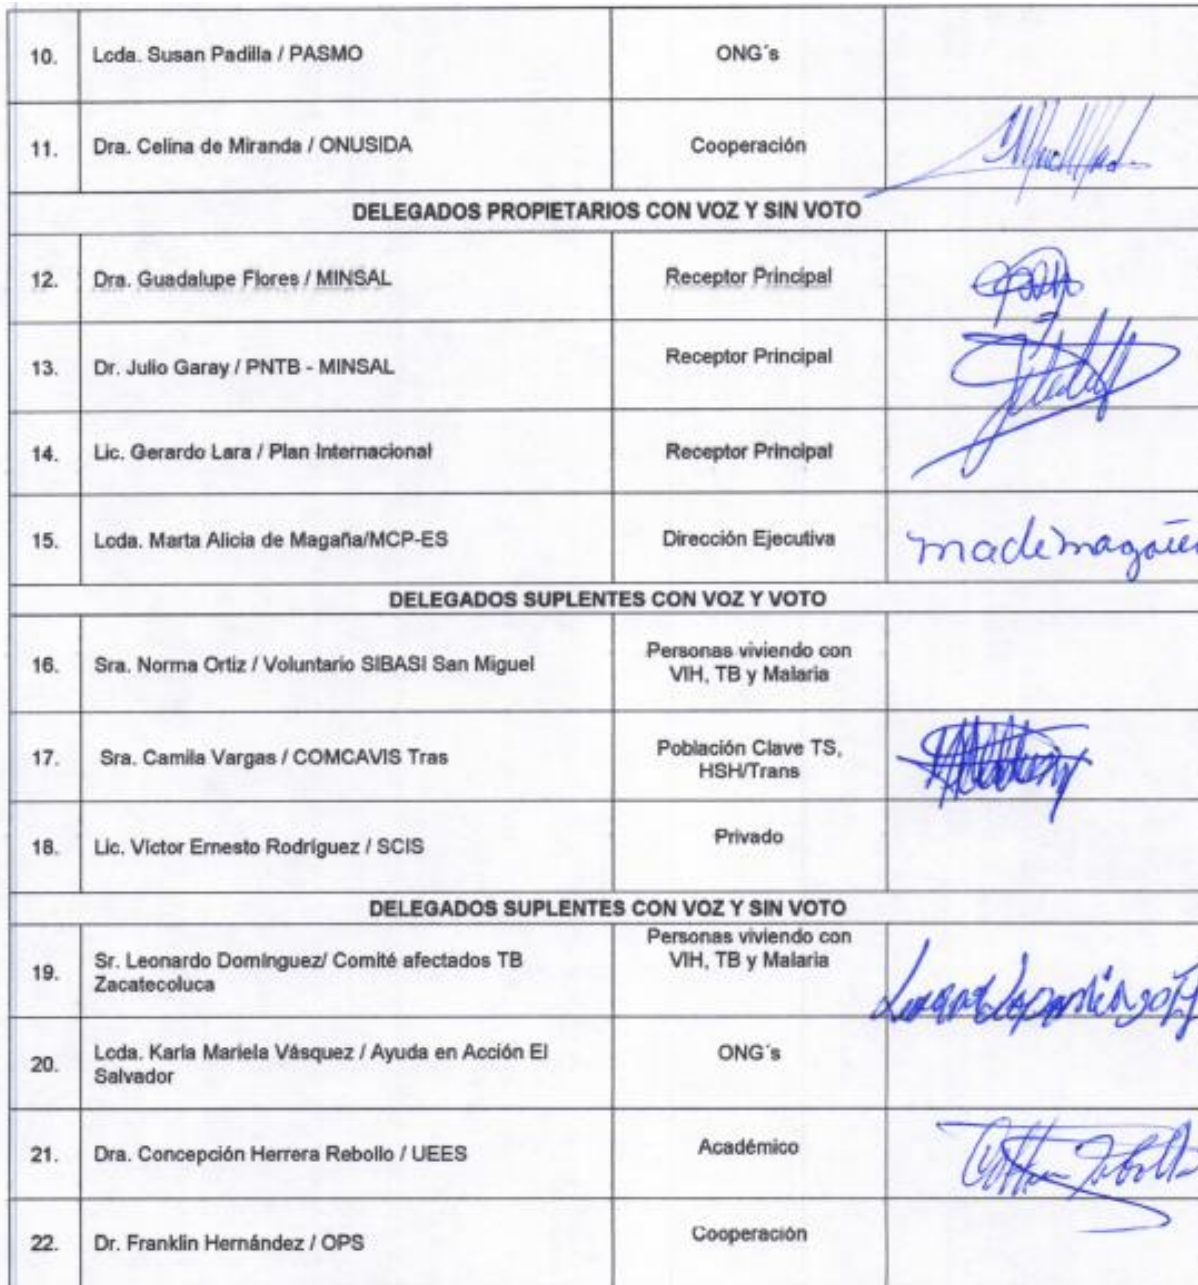 10. Lcda. Susan Padilla / PASMO ONG´s
11. Dra. Celina de Miranda / ONUSIDA Cooperación
DELEGADOS PROPIETARIOS CON VOZ Y SIN VOTO
12. Dra. Guadalupe Flores / MINSAL Receptor Principal
13. Dr. Julio Garay / PNTB - MINSAL Receptor Principal
14. Lic. Gerardo Lara / Plan Internacional Receptor Principal
15. Lcda. Marta Alicia de Magaña/MCP-ES Dirección Ejecutiva
DELEGADOS SUPLENTES CON VOZ Y VOTO
16. Sra. Norma Ortiz / Voluntario SIBASI San Miguel Personas viviendo con
VIH, TB y Malaria
17. Sra. Camila Vargas / COMCAVIS Tras Población Clave TS,
HSH/Trans
18. Lic. Víctor Ernesto Rodríguez / SCIS Privado
DELEGADOS SUPLENTES CON VOZ Y SIN VOTO
19. Sr. Leonardo Domínguez/ Comité afectados TB
Zacatecoluca
Personas viviendo con
VIH, TB y Malaria
20. Lcda. Karla Mariela Vásquez / Ayuda en Acción El
Salvador
ONG´s
21. Dra. Concepción Herrera Rebollo / UEES Académico
22. Dr. Franklin Hernández / OPS Cooperación